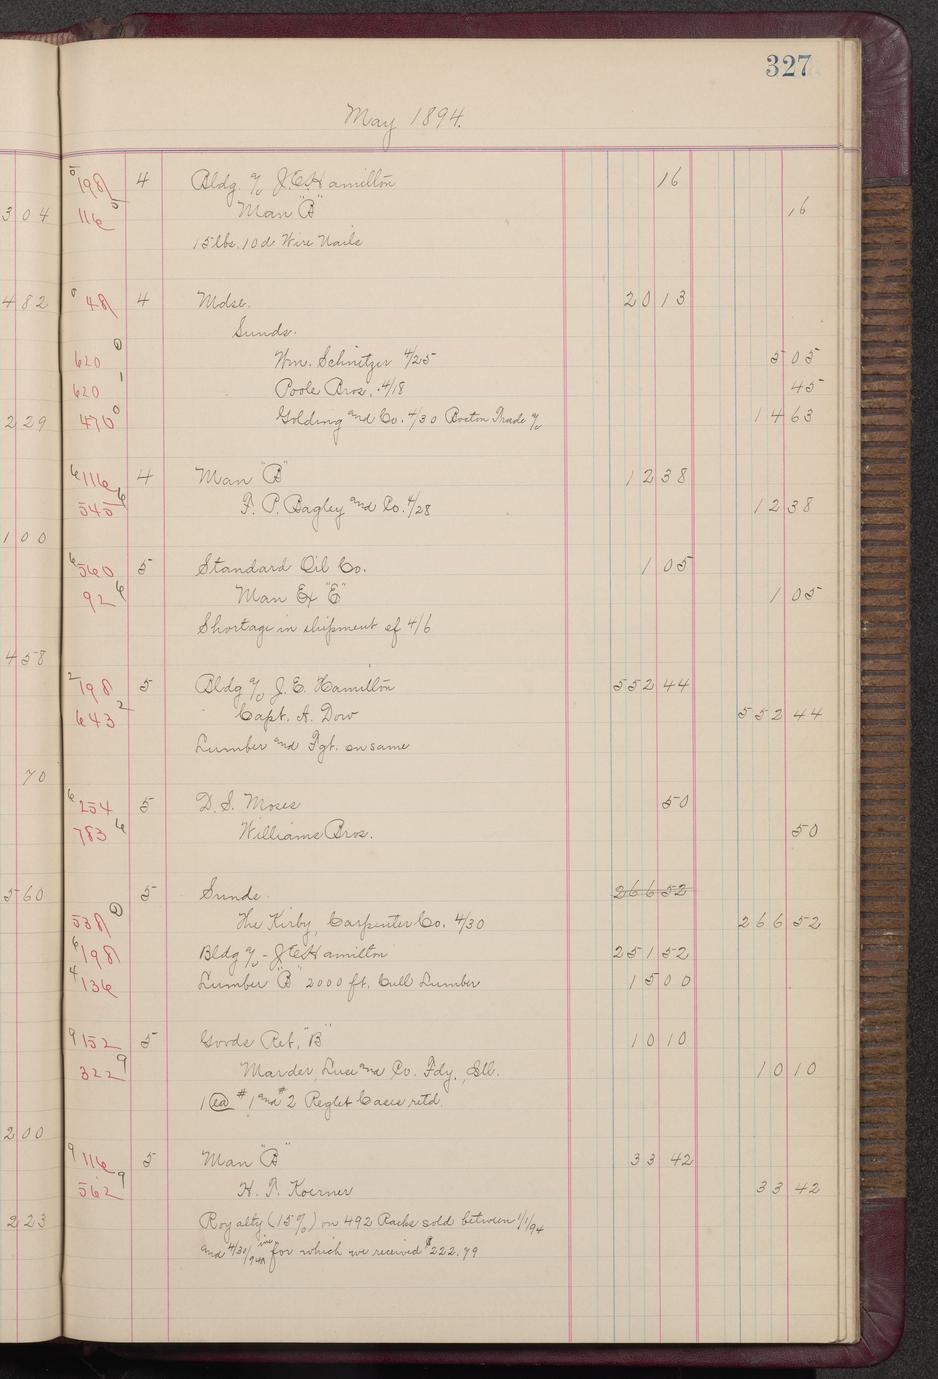 327
May 1894.
198 4 Bldg. a/c J.E. Hamilton 16
304 116 Man "B" 16
15 lbs. 10d Wire Nails
482 48 4 Mdse. 20 13
Sunds.
620 Wm. Schnitzer 4/25 5 05
620 Poole Bros. 4/18 45
229 470 Golding and Co. 4/30 Boston Trade a/c 14 63
116 4 Man "B" 12 38
545 F. P. Bagley and Co. 4/28 12 38
100
560 5 Standard Oil Co. 1 05
92 Man Ex "E" 1 05
Shortage in shipment of 4/6
458
198 5 Bldg a/c J. E. Hamilton 552 44
643 Capt. A. Dow 552 44
Lumber and Fgt. on same
70
254 5 D. S. Moses 50
783 Williams Bros. 50
560 5 Sunds. 266 52
538 The Kirby, Carpenter Co. 4/30 266 52
198 Bldg a/c - J.E. Hamilton 251 52
136 Lumber "B" 2000 ft. Cull Lumber 15 00
152 5 Goods Ret. "B" 10 10
322 Marder, Luse and Co. Fdy., Ill. 10 10
1 ea #1 and #2 Reglet Cases retd.
200
116 5 Man "B" 33 42
562 H. T. Koerner 33 42
223 Royalty (15%) on 492 Racks sold between 1/1/94
and 4/30/94 inc for which we received $222.79